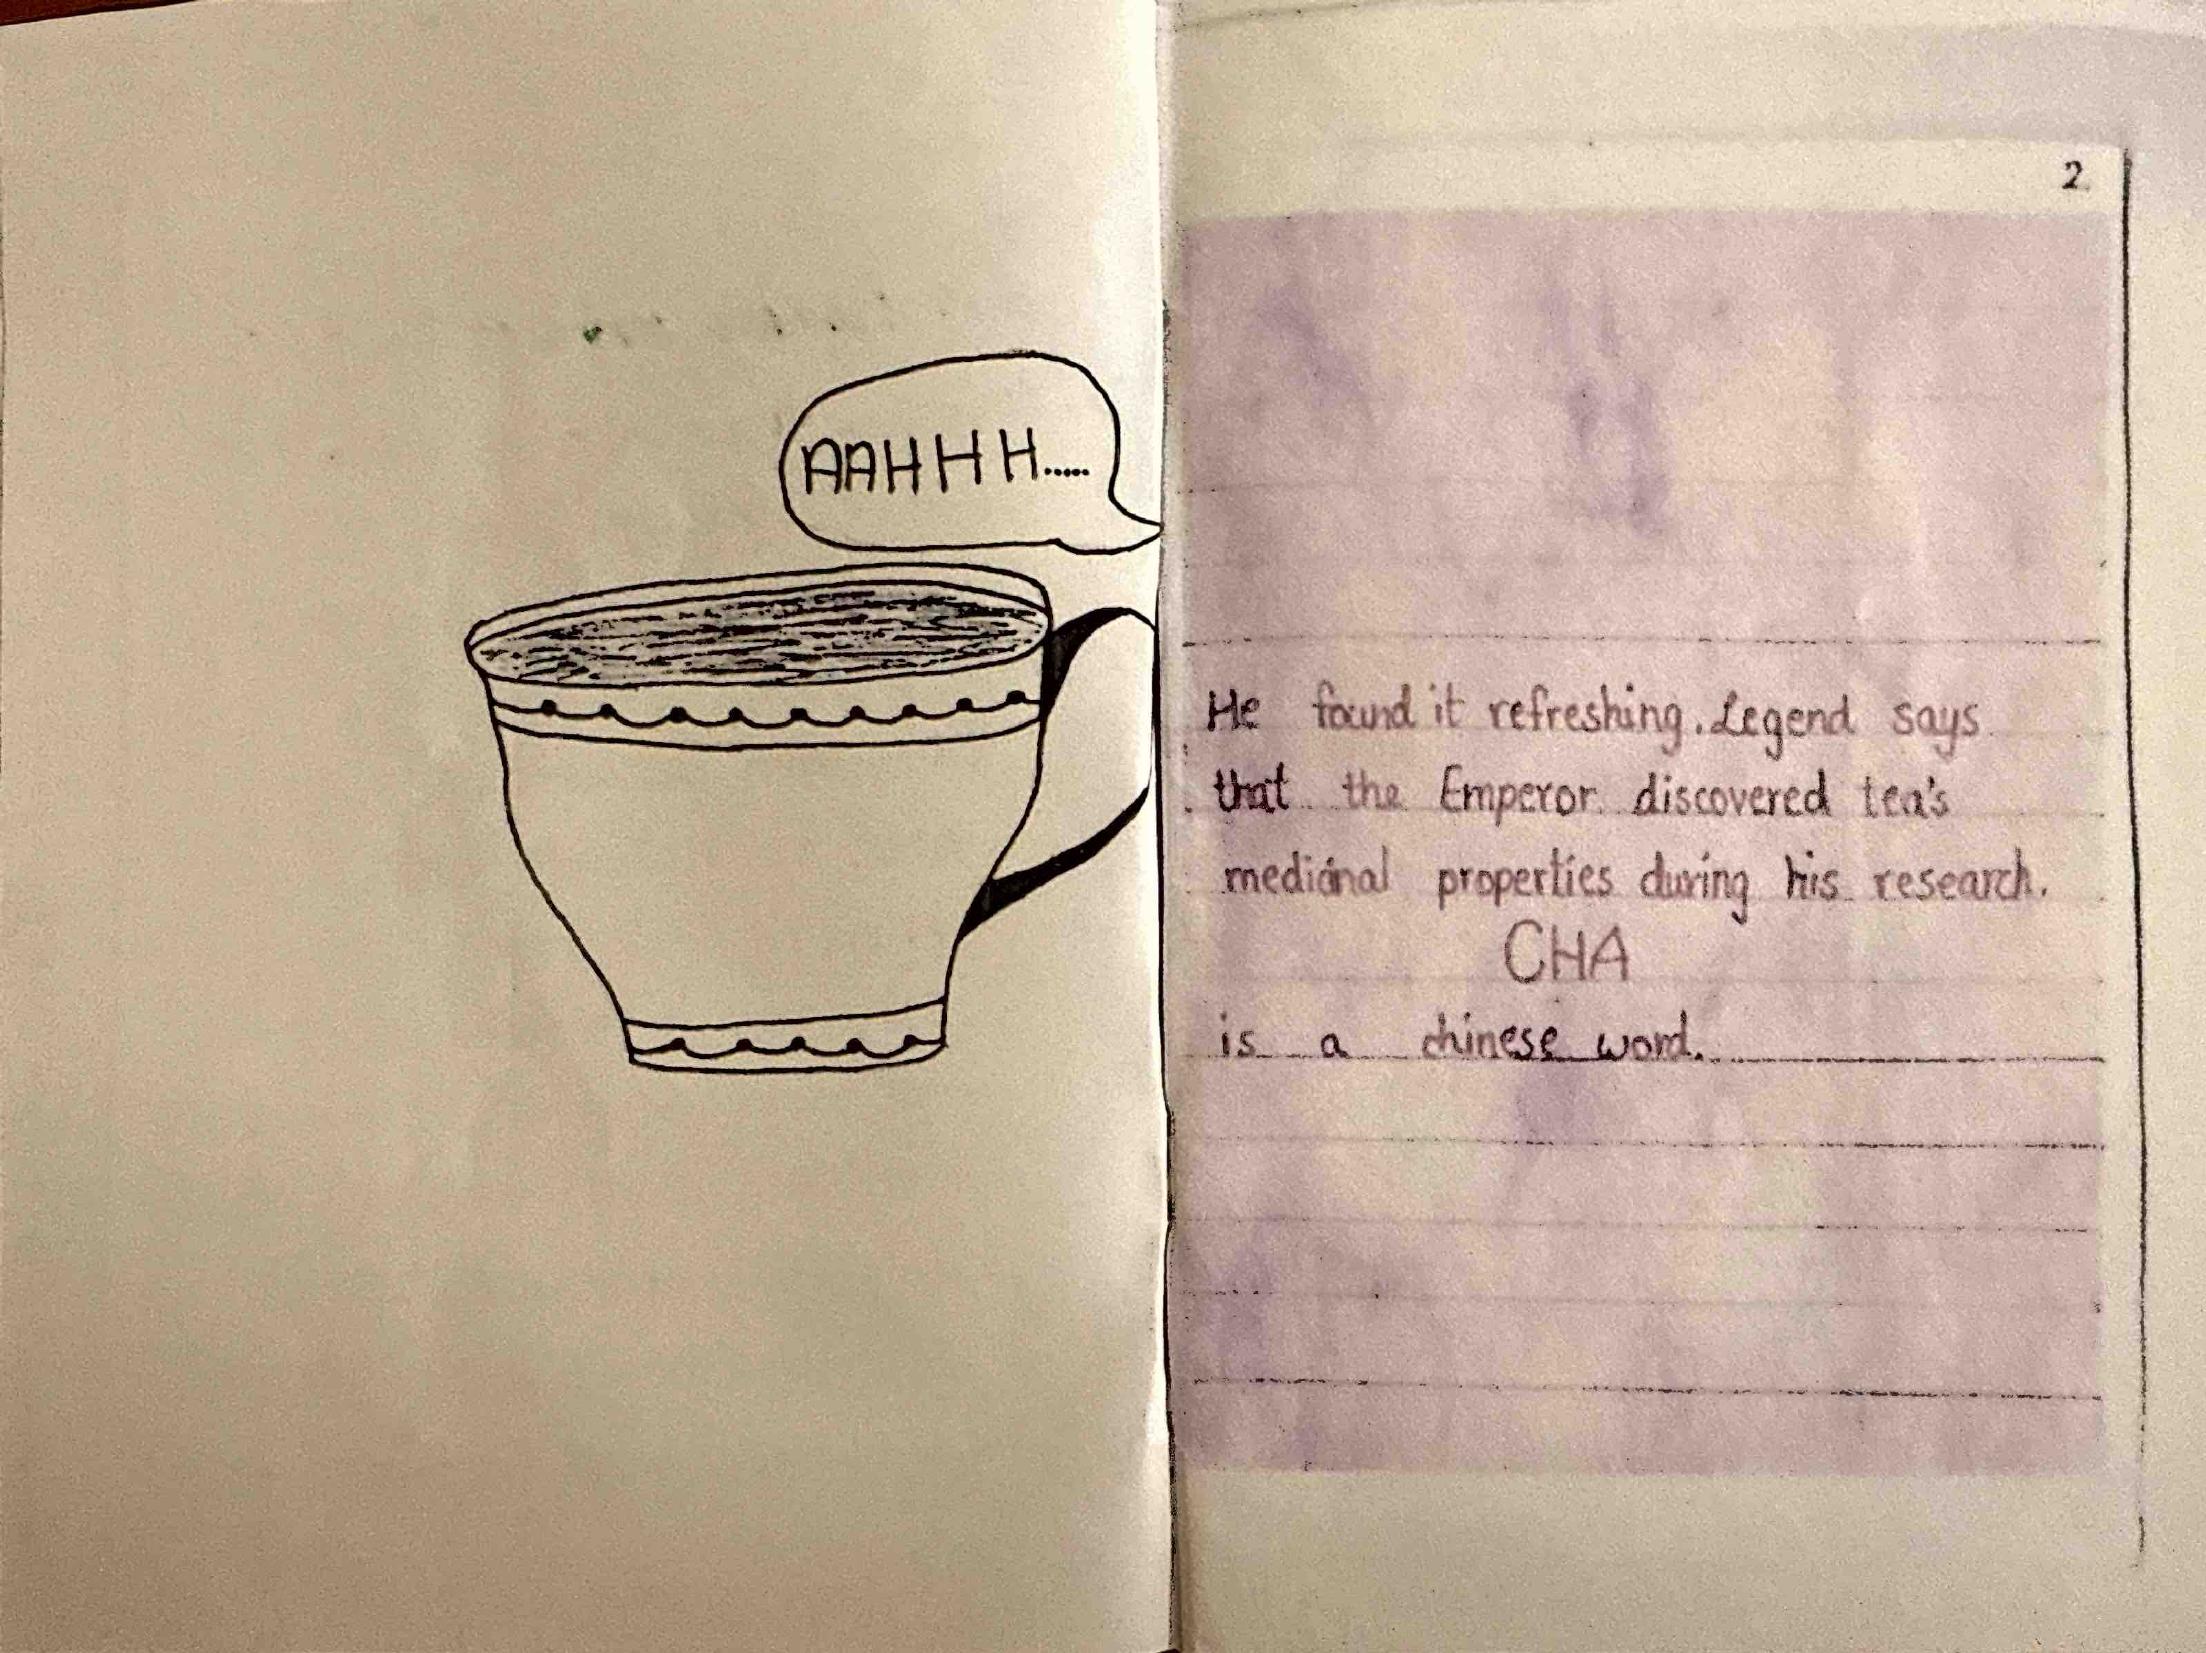 AAHHH.....
2
He found it refreshing. Legend says
that the Emperor discovered tea's
medicinal properties during his research.
CHA
is a chinese word.